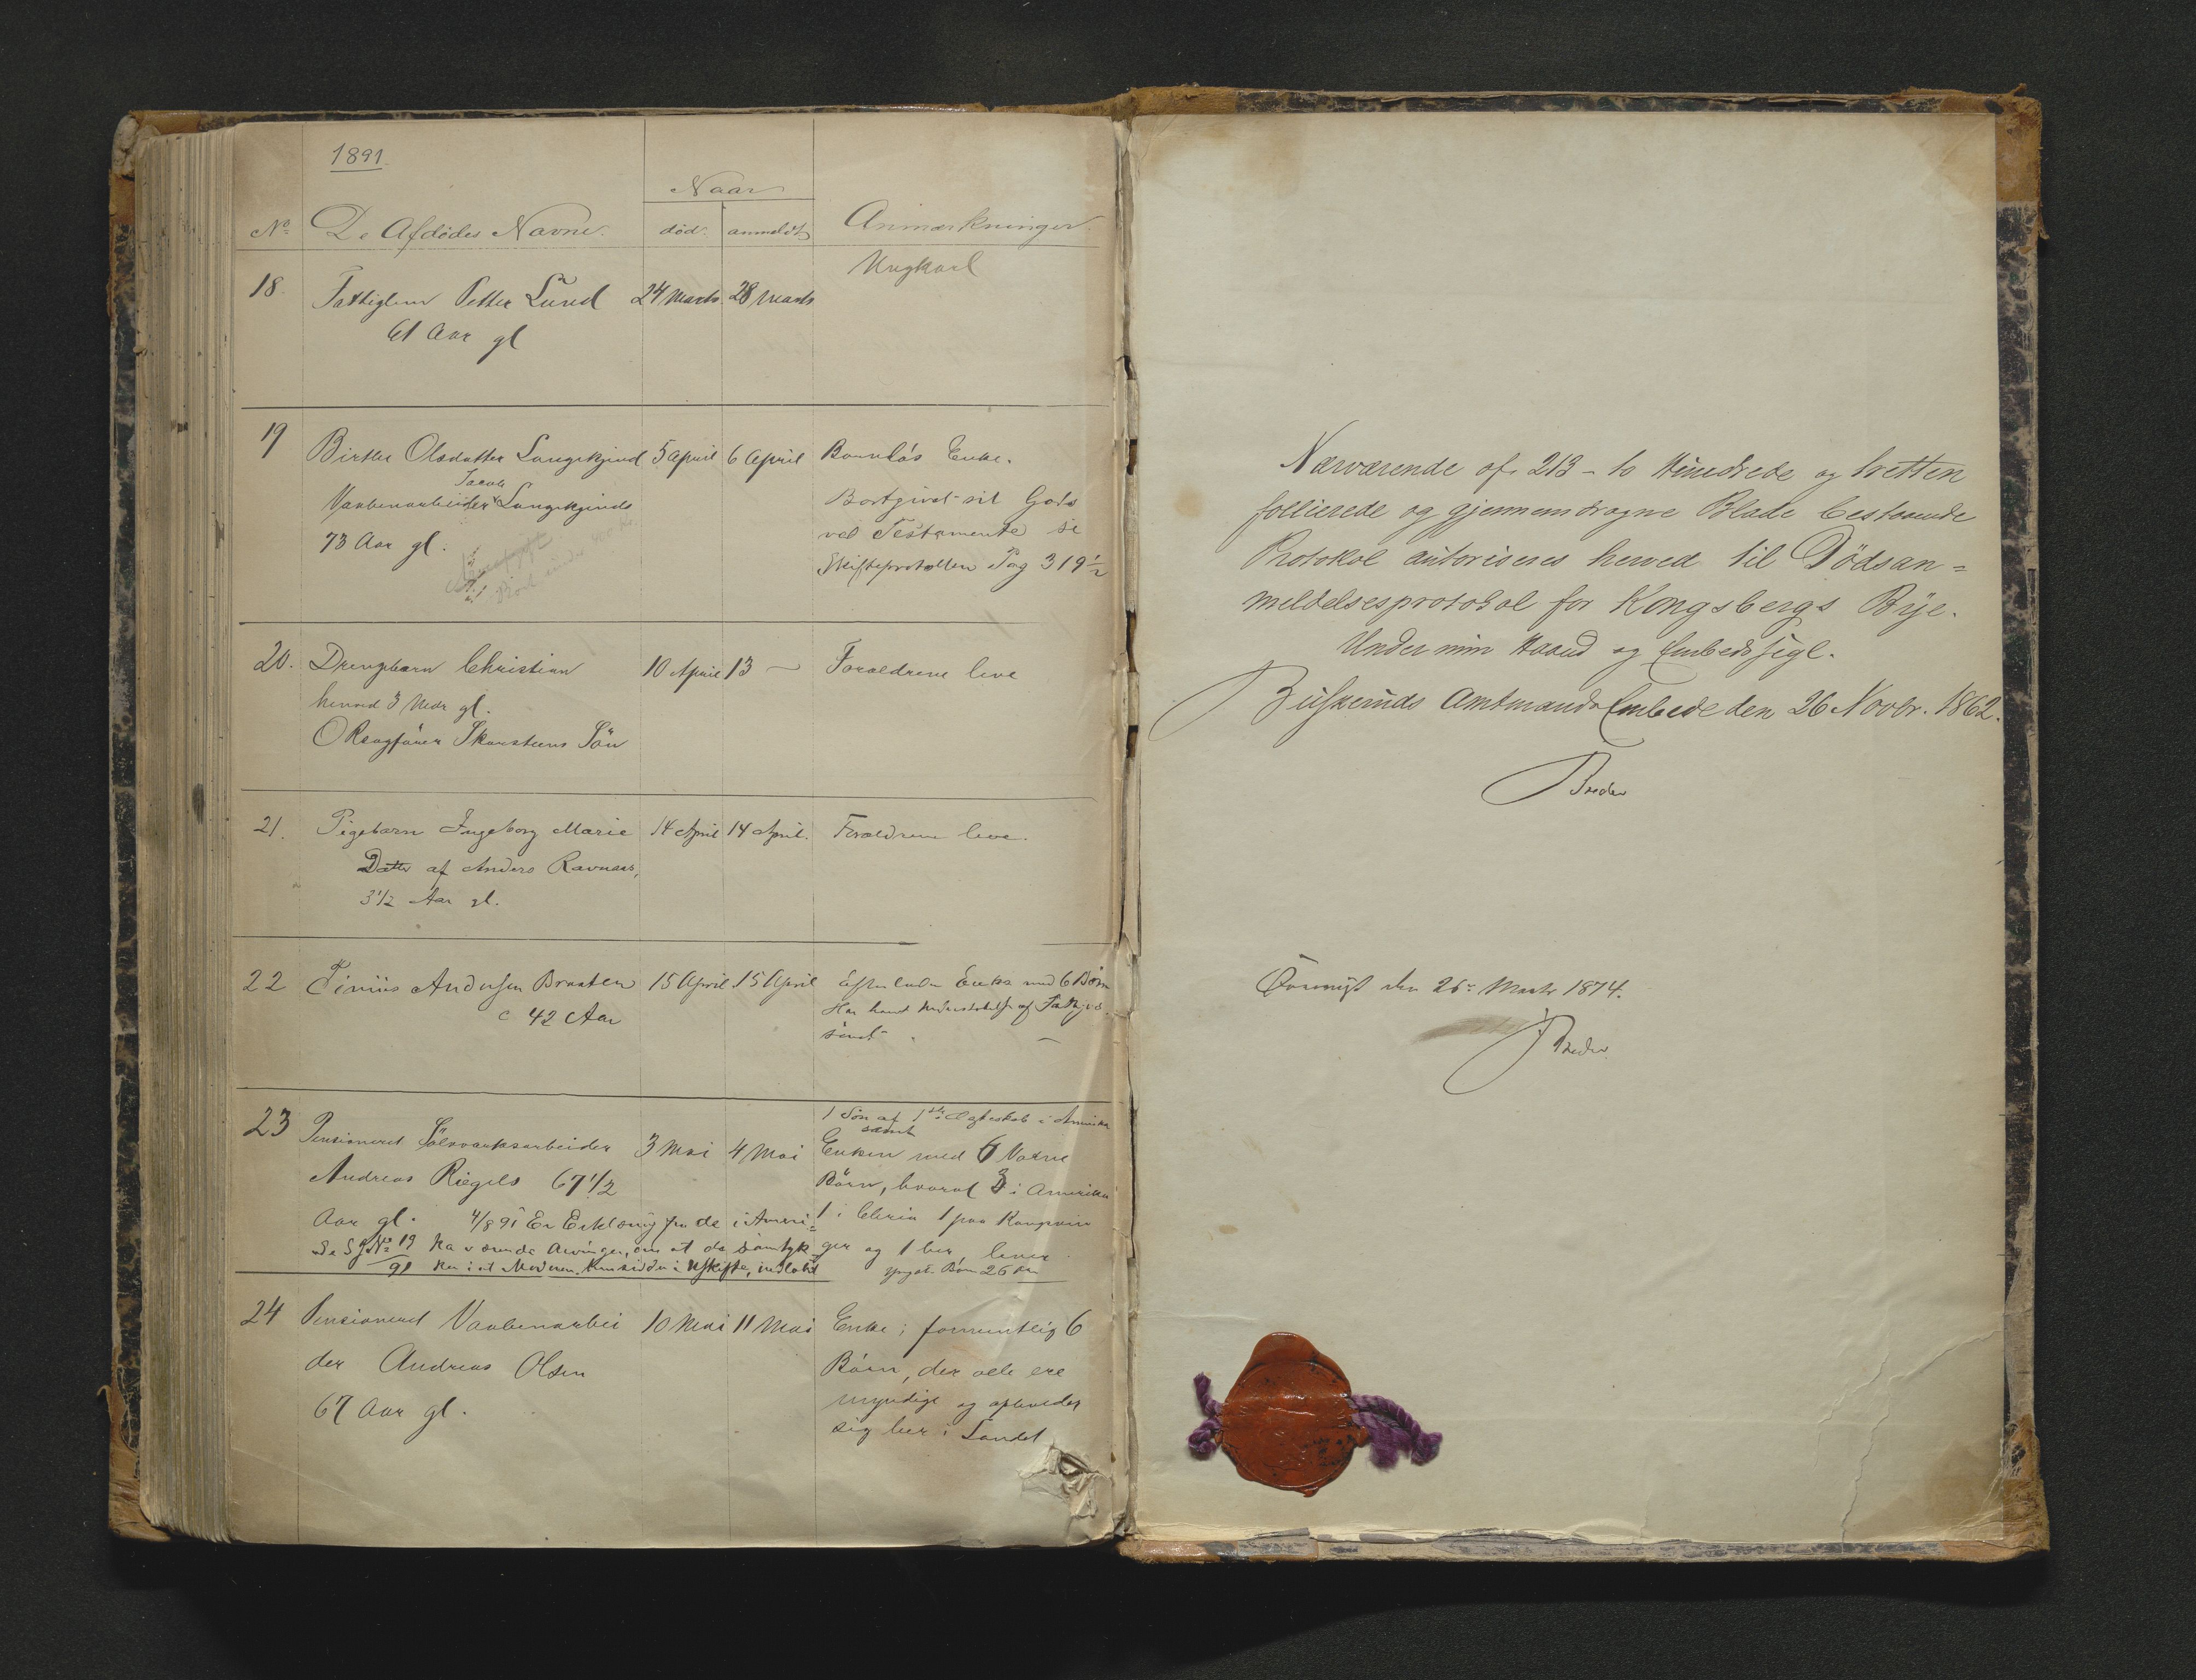 1891.
Naar
No De Afdödes Navne. död. anmeldt Anmærkninger.
18. Fattiglem Petter Lund 24 Marts. 28 Marts Ungkarl
61 Aar gl
19 Birthe Olsdatter Langekjend 5 April 6 April Barnløs Enke.
Jacob
Vaabenarbeider Langekjends Bortgivet sit Gods
ved Testamente se
73 Aar gl.
Skifteprotokollen Pag 319 1/2
20. Drengbarn Christian 10 April 13 — Forældrene leve
henved 3 Mdr gl.
O Rsagfører Skarsteens Sön
21. Pigebarn Ingeborg Marie 14 April 14 April. Forældrene leve.
Datter af Anders Ravnaas,
3 1/2 Aar gl.
22 Tinius Andersen Braaten 15 April 15 April Efterlader Enke med 6 Börn
c 42 Aar Har havt Understøttelse af Fattigvæ-
senet
1 Sön af 1ste Ægteskab i Amerika
samt
23 Pensioneret Sölvværksarbeider 3 Mai 4 Mai Enken med 6 Voxne
Andreas Riegels 67 1/2 Börn, hvoraf 3 i Amerika
Aar gl. 4/8 91 En Erklæring fra de i Ameri= 1 i Christiania 1 paa Kongsvin
Se SJ No 19/91 ka værende Arvinger, om at de samtyk- ger og 1 her, lever
ker i at Moderen hensidder i Uskifte, indlobet yngste Barn 26 Aar
24 Pensioneret Vaabenarbei 10 Mai 11 Mai Enke; formentlig 6
der Andreas Olsen Börn, der alle ere
67 Aar gl. myndige og opholder
sig her i Landet
Nærværende af 213 – to Hundrede og tretten
follierede og gjennemdragne Blade bestaaende
Protokol autoriseres herved til Dödsan=
meldelsesprotokol for Kongsbergs Bye.
Under min Haand og Embedssegl.
Buskeruds Amtmands Embede den 26 Novbr. 1862.
Breder
den 26de Marts 1874.
Breder